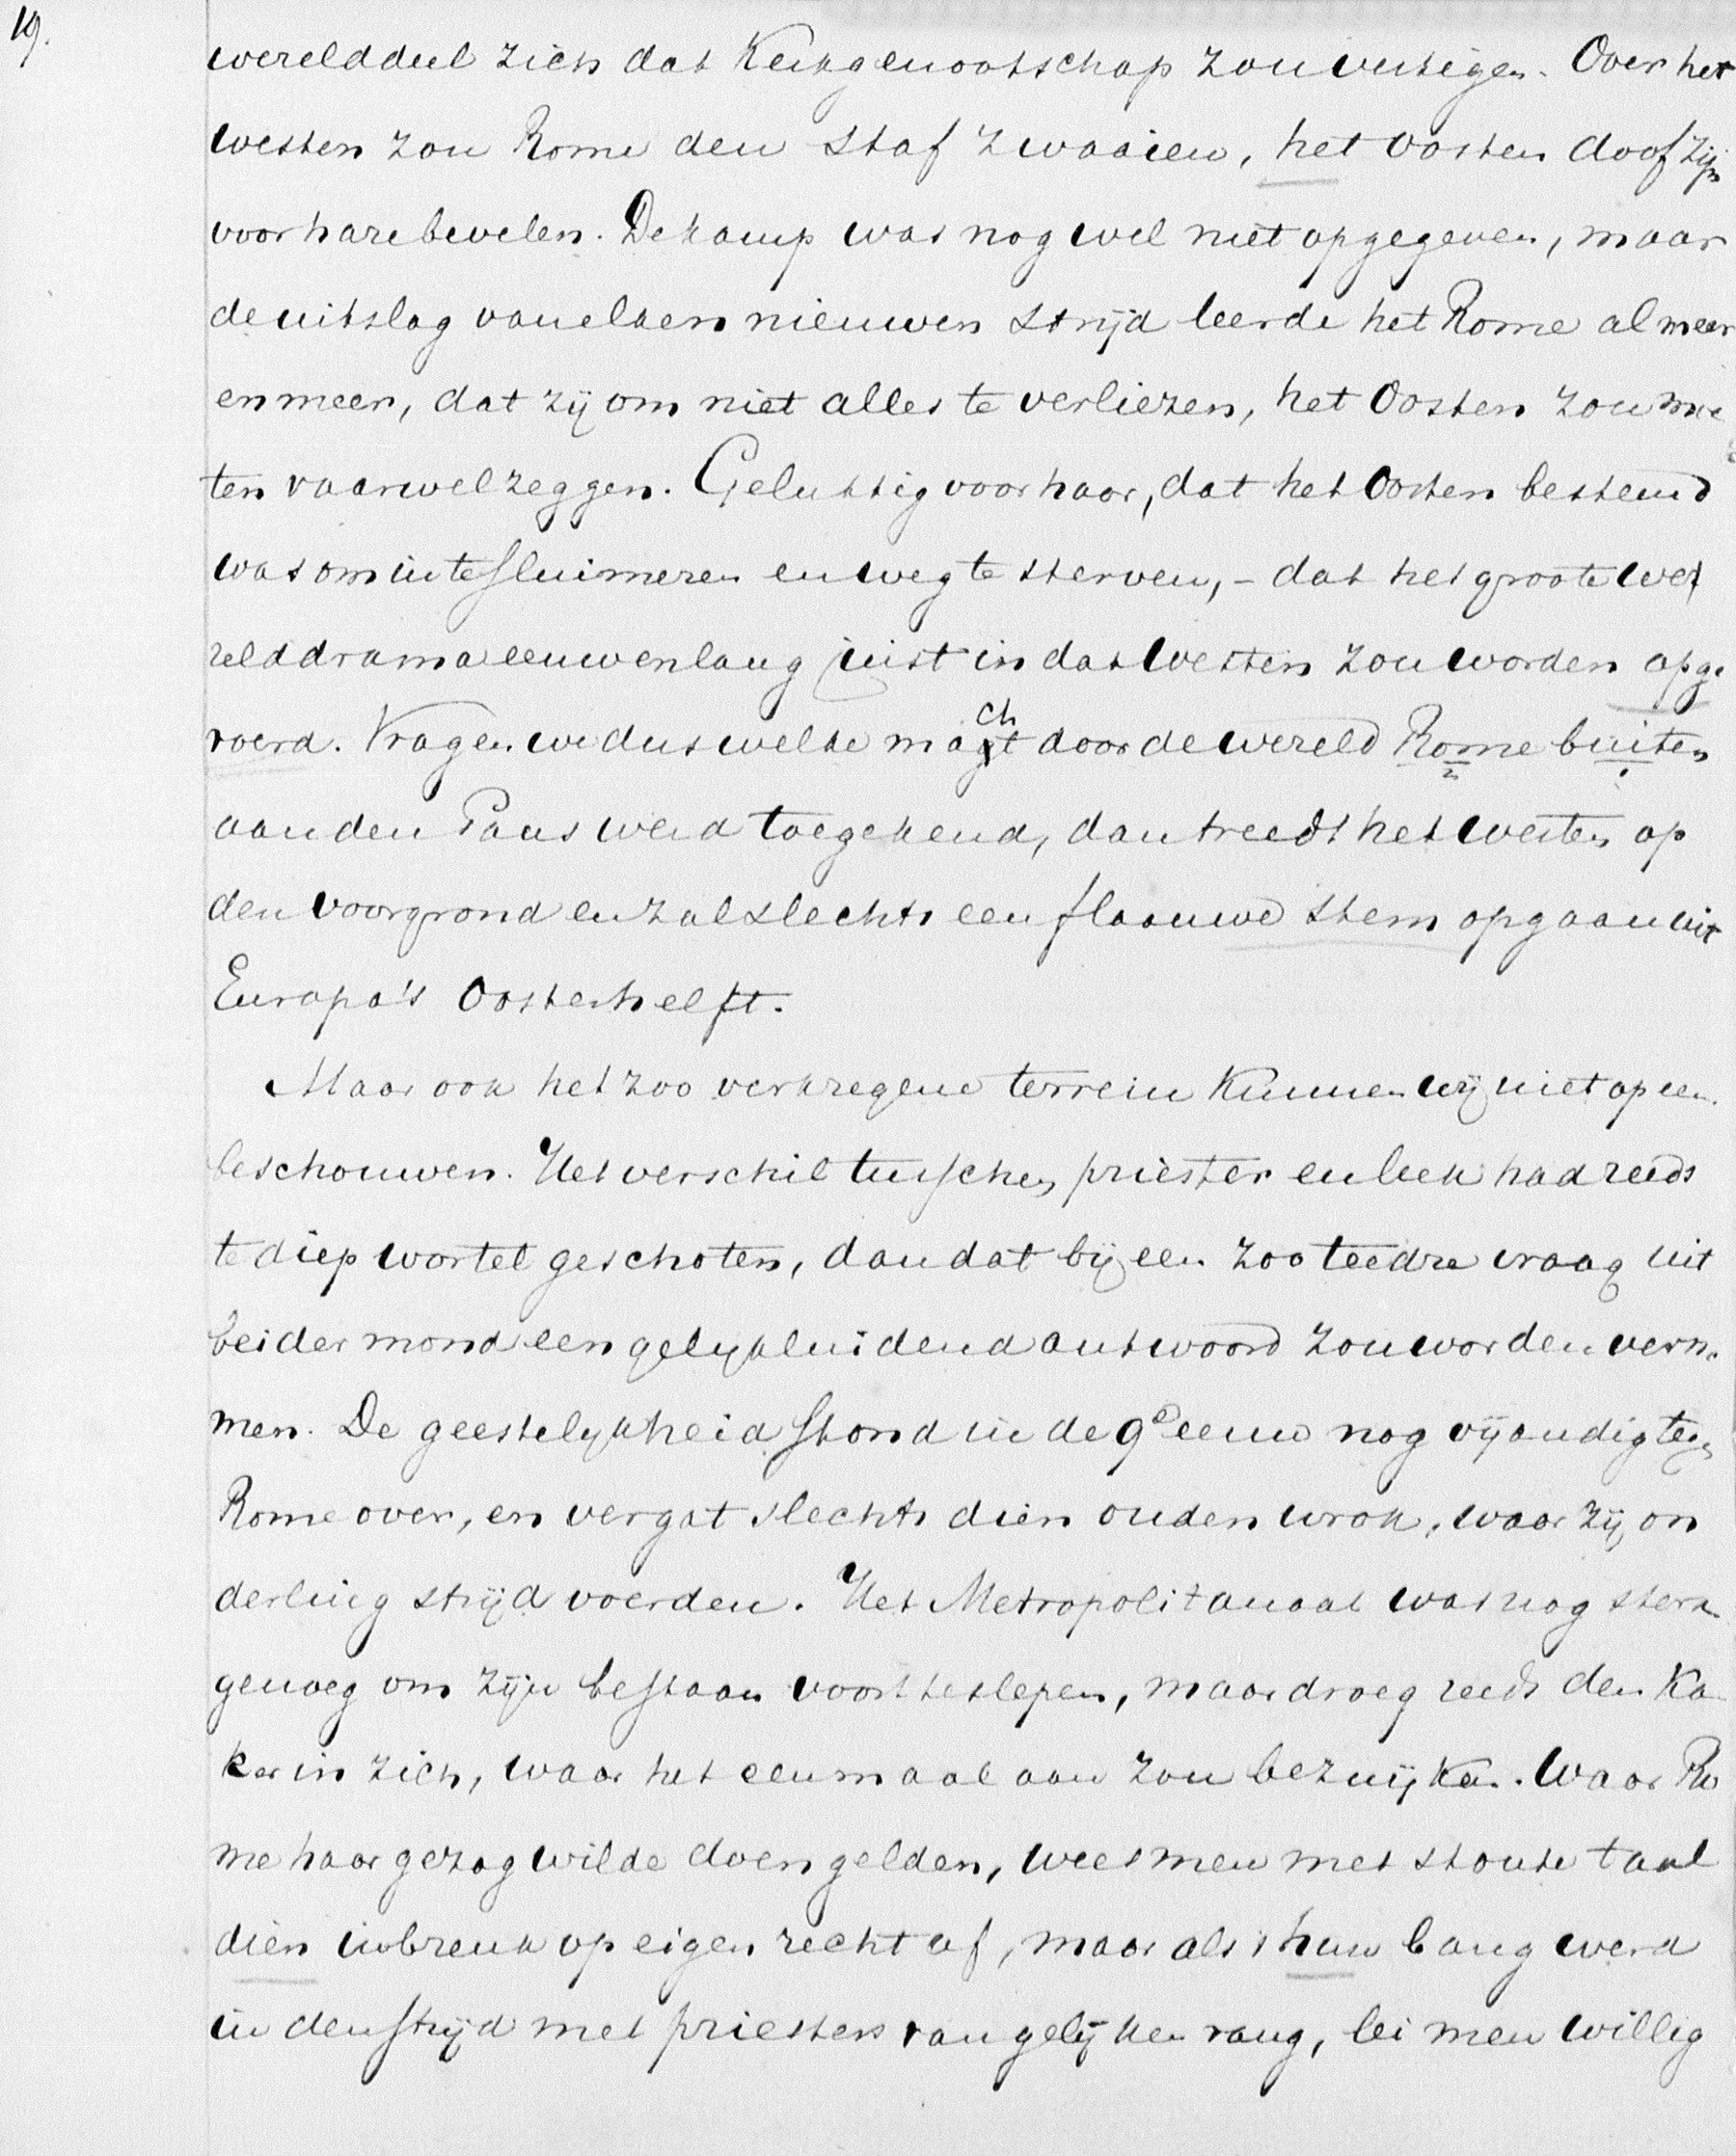 19.
werelddeel zich dat Kerkgenootschap zou vestigen. Over het
westen zou Rome den staf zwaaien, het oosten doof zijn
voor hare bevelen. De kamp was nog wel niet opgegeven, maar
de uitslag van elken nieuwen strijd leerde het Rome al meer
en meer, dat zij om niet alles te verliezen, het Oosten zou moe
ten vaarwel zeggen. Gelukkig voor haar, dat het Oosten bestemd
was om in te sluimeren en weg te sterven, - dat het groote we
relddrama eeuwenlang juist in dat Westen zou worden opge
voerd. Vragen we dus welke macht door de wereld Rome buiten
aan den Paus werd toegekend, dan treedt het westen op
den voorgrond en zal slechts een flaauwe stem opgaan uit
Europa's Oosterhelft.
Maar ook het zoo verkregene terrein kunnen wij niet op een
beschouwen. Het verschil tusschen priester en leek had reeds
te diep wortel geschoten, dan dat bij een zoo teedre vraag uit
beider mond een gelykluidend antwoord zou worden verno
men. De geestelykheid stond in de 9e eeuw nog vijandig tegen
Rome over, en vergat slechts dien ouden wrok, waar zij on
derling strijd voerden. Het Metropolitanaat was nog sterk
genoeg om zijn bestaan voort te slepen, maar droeg reeds den Kan
ker in zich, waar het eenmaal aan zou bezwijken. Waar Ro
me haar gezag wilde doen gelden, wees men met stoute taal
dien inbreuk op eigen recht af, maar als 't hun bang werd
in den strijd met priesters van gelijken rang, lei men willig